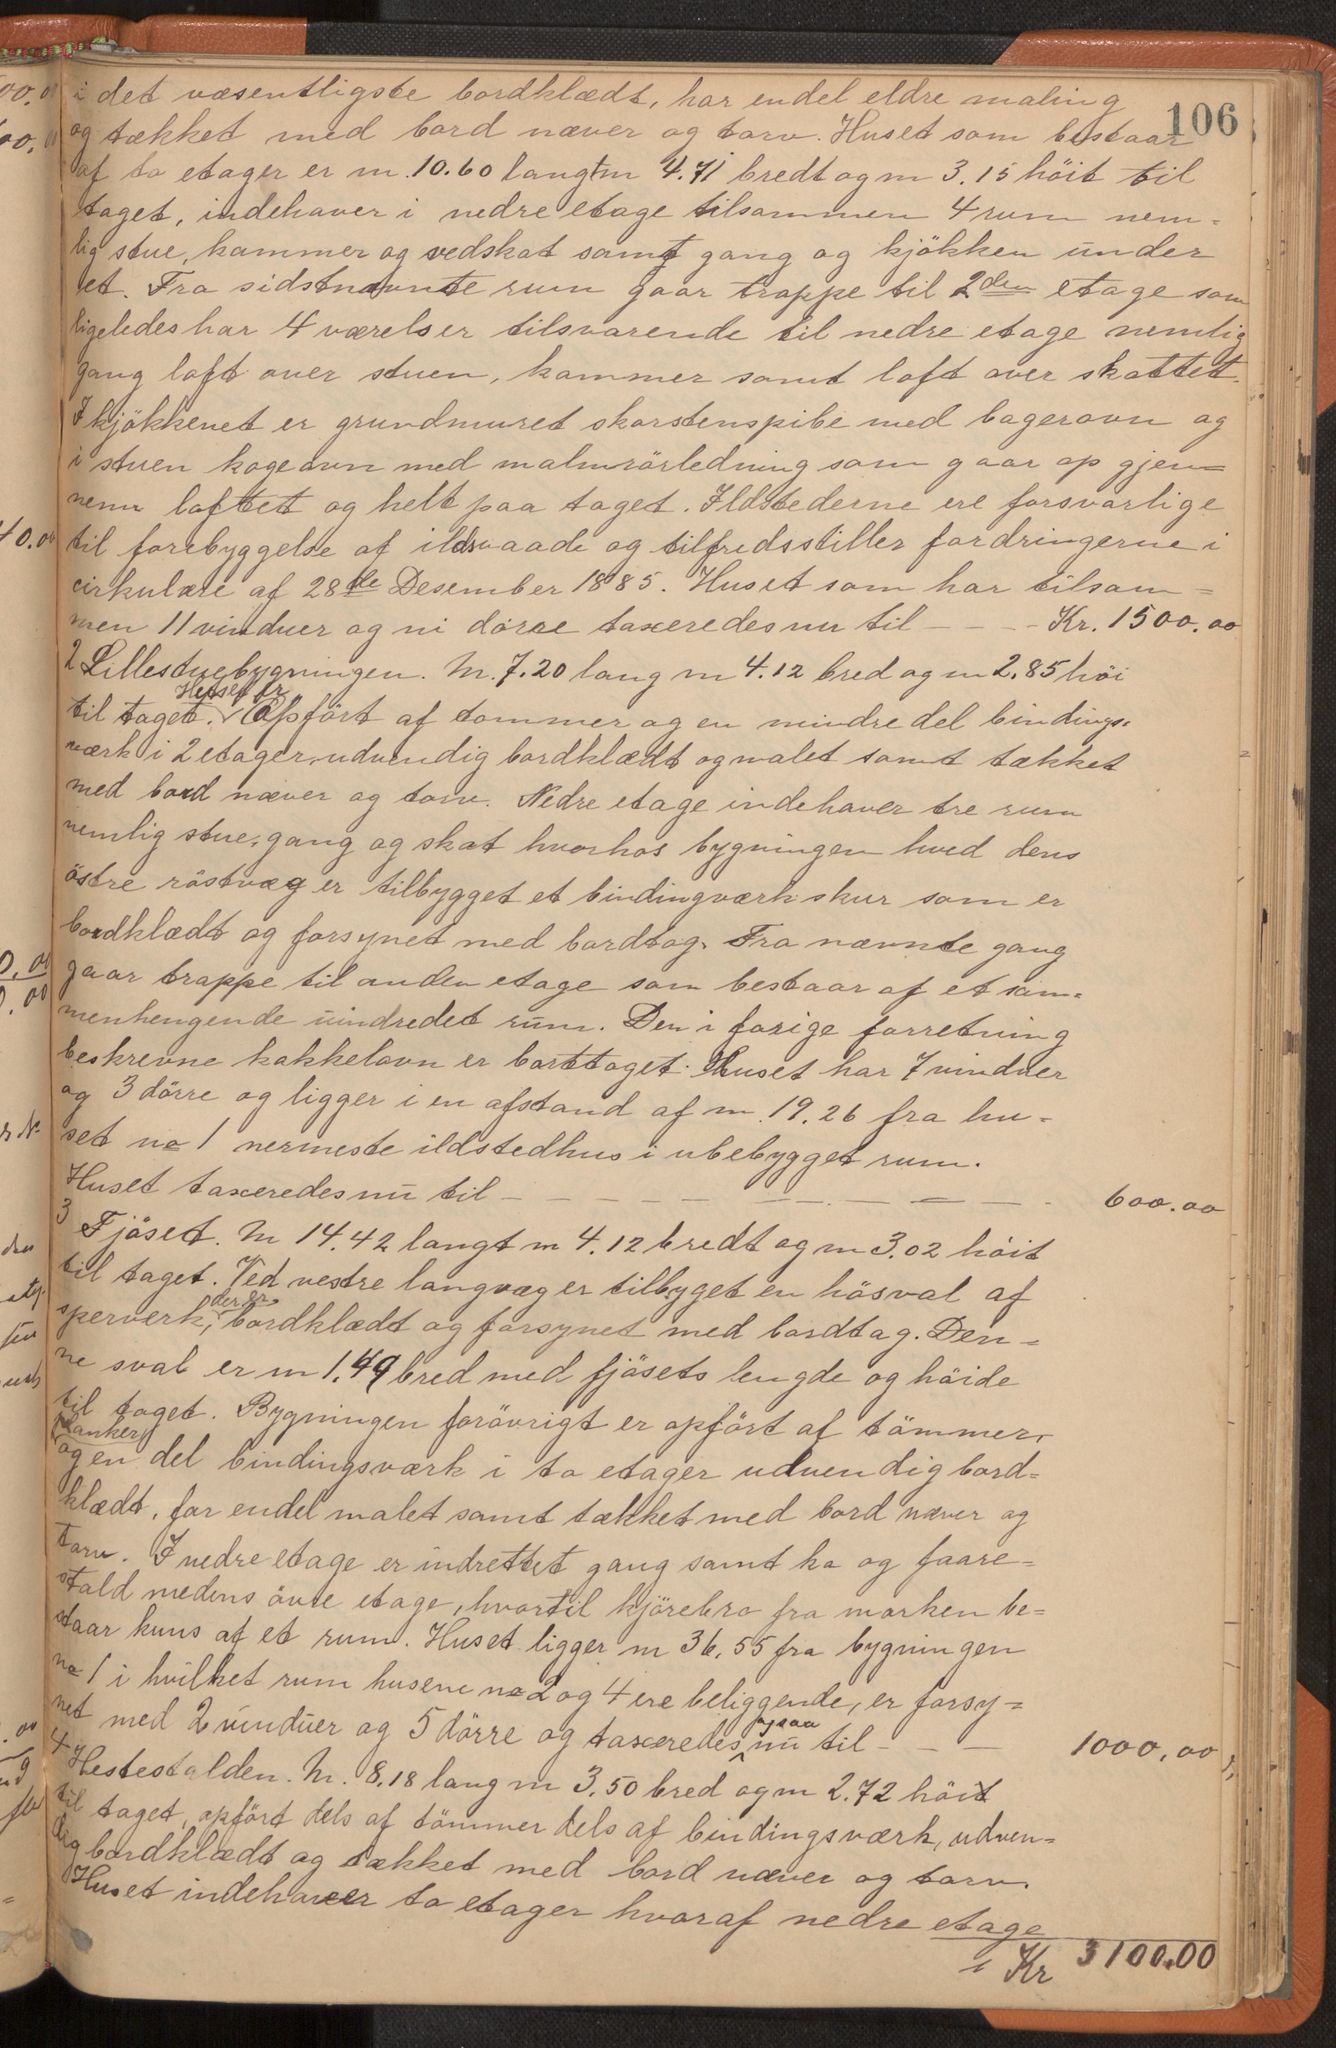 106
i det væsentligste bordklædt, har endel eldre maling
og tækket med bord næver og torv. Huset som bestaar
af to etager er m. 10.60 langt m 4.71 bredt og m 3.15 höit til
taget, indehaver i nedre etage tilsammen 4 rum nem-
lig stue, kammer og vedskot samt gang og kjökken under
et. Fra sidstnævnte rum gaar trappe til 2den etage som
ligeledes har 4 værelser tilsvarende til nedre etage nemlig
gang loft over stuen, kammer samt loft over skottet.
I kjökkenet er grundmuret skorstenspibe med bagerovn og
i stuen kogeovn med malmrörledning som gaar op gjen=
nem loftet og helt paa taget. Ildstederne ere forsvarlige
til forebyggelse af ildsvaade og tilfredsstiller fordringerne i
cirkulære af 28de Desember 1885. Huset som har tilsam=
men 11 vinduer og ni dörre taxeredes nu til - - - Kr. 1500.00
2 Lillestuebygningen. M. 7.20 lang m 4.12 bred og m 2.85 höi
til taget. Huset er Opfört af tommer og en mindre del bindings-
værk i 2 etager, udvendig bordklædt og malet samt tækket
med bord næver og torv. Nedre etage indehaver tre rum
nemlig stue, gang og skot hvorhos bygningen hved dens
östre röstvæg er tilbygget et bindingværk skur som er
bordklædt og forsynet med bordtag. Fra nævnte gang
gaar trappe til anden etage som bestaar af et sam-
menhengende uindredet rum. Den i forige forretning
beskrevne kakkelovn er borttaget. Huset har 7 vinduer
og 3 dörre og ligger i en afstand af m. 19.26 fra hu-
set no 1 nermeste ildstedhus i ubebygget rum.
Huset taxeredes nu til - - - - - - - - - 600.00
3 Fjöset. M 14.42 langt m 4.12 bredt og m 3.02 höit
til taget. Ved vestre langvæg er tilbyget en hösval af
sperverk, der er bordklædt og forsynet med bordtag. Den=
ne sval er m 1.49 bred med fjösets lengde og höide
til taget. Bygningen forövrigt er opfört af tömmer,
planker og en del bindingsværk i to etager udvendig bord=
klædt, for endel malet samt tækket med bord næver og
torv. I nedre etage er indrettet gang samt ko og faare=
stald medens övre etage, hvortil kjörebro fra marken be=
staar kuns af et rum. Huset ligger m 36.55 fra bygningen
no 1 i hvilket rum husene no 2 og 4 ere beliggende, er forsy=
net med 2 vinduer og 5 dörre og taxeredes ogsaa nu til - - - 1000,00
4 Hestestalden. M. 8.18 lang m 3.50 bred og m 2.72 höit
til taget, opfört dels af tömmer dels af bindingsværk, udven=
dig bordklædt og tækket med bord næver og torv.
Huset indehaver to etager hvoraf nedre etage
Kr 3100.00